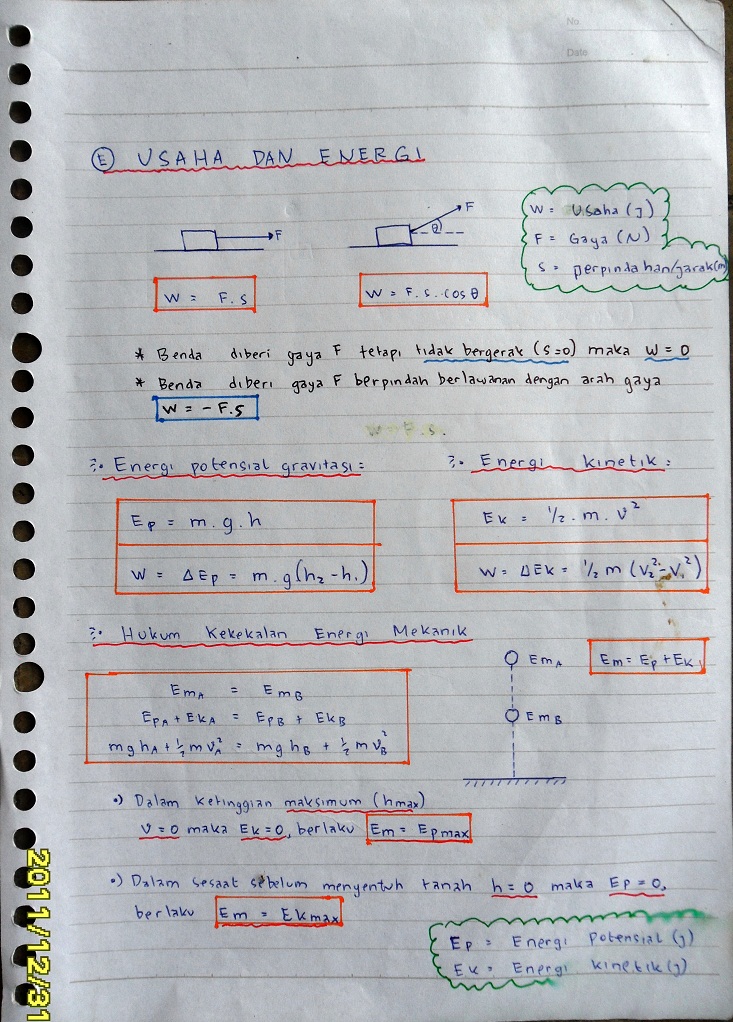 No
Date
E USAHA DAN ENERGI
F
F
θ
W = Usaha (J)
F = Gaya (N)
S = perpindahan/jarak (m)
W = F.s
W = F.s.cos θ
* Benda diberi gaya F tetapi tidak bergerak (s=0) maka W = 0
* Benda diberi gaya F berpindah berlawanan dengan arah gaya
W = -F.s
W = F.s.
Energi potensial gravitasi :
Energi kinetik :
Ep = m.g.h
W = ΔEp = m.g(h₂ - h₁)
Ek = 1/2 . m. v²
W = ΔEk = 1/2 m (V₂² - V₁²)
Hukum Kekekalan Energi Mekanik
EmA
EmB
Em = Ep + Ek
EmA = EmB
EpA + EkA = EpB + EkB
mghA + 1/2 mvA² = mghB + 1/2 mvB²
•) Dalam ketinggian maksimum (hmax)
v = 0 maka Ek = 0, berlaku Em = Ep max
•) Dalam sesaat sebelum menyentuh tanah h = 0 maka Ep = 0,
berlaku Em = Ek max
Ep = Energi Potensial (J)
Ek = Energi kinetik (J)
2011/12/31